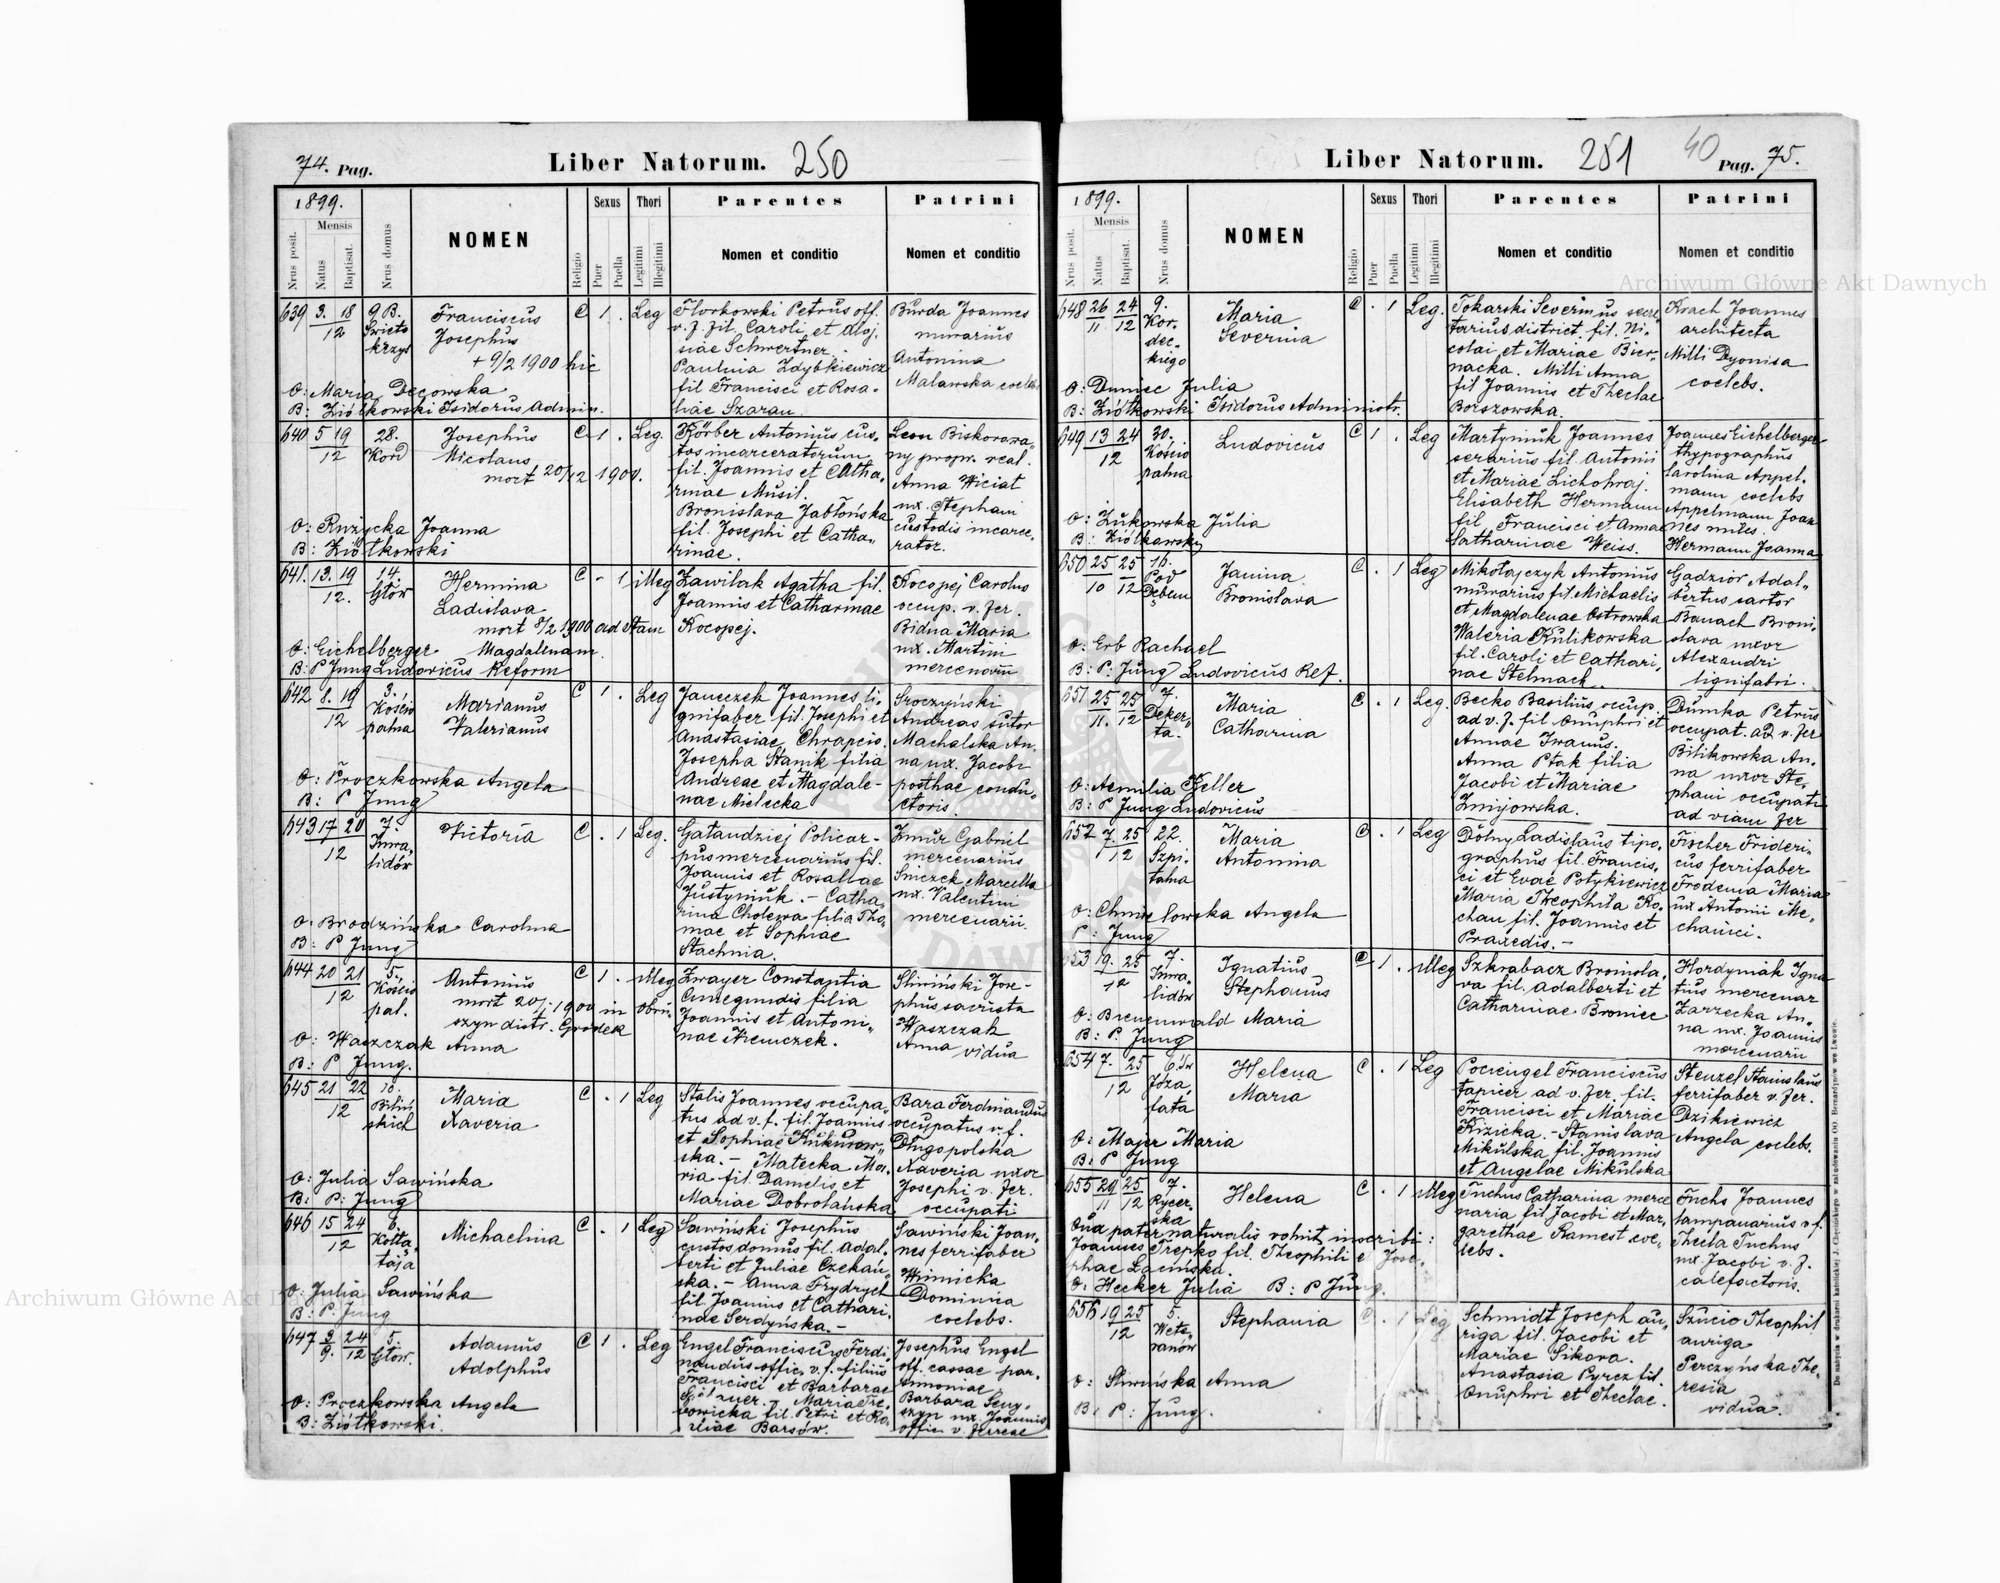 74. Pag.
Liber Natorum. 250
1899.
Mensis
Nrus posit.
Natus
Baptisat.
Nrus domus
NOMEN
Religio
Sexus
Puer
Puella
Thori
Legitimi
Illegitimi
Parentes
Nomen et conditio
Patrini
Nomen et conditio
639 3. 18 9 B. Franciscus C 1 . Leg
12
Josephus
+ 9/2 1900 hic
v. f. fil. Caroli et Aloj.
siae Schwertner.
Paulina Zdybkiewicz
fil Francisci et Rosa-
liae Szarau.
Burda Joannes
murarius
Antonina
Malawska
O: Maria Decowska
B: Ziółkowski Isidorus Admin.
640 5 19 28. Josephus C 1 . Leg.
12
Nicolaus
mort 20/12 1900.
Körber Antonius cus-
tos incarceratorum
fil. Joannis et Catha-
rinae Musil.
Bronislava Jabłońska
fil. Josephi et Catha-
rinae.
ny propr. real.
Anna Wiciat
ux. Stephani
custodis incarce-
rator.
O: Rużycka Joanna
B: Ziółkowski
641. 13. 19 14. Hermina C - 1 illeg
12. Głów
Ladislava
mort 8/2 1900 ad Stam
Zawilak Agatha fil.
Joannis et Catharinae
Kocopej.
Kocopej Carolus
occup. v. fer.
Bidua Maria
ux. Martini
mercenarii
O: Eichelberger Magdalenam
B: P Jung Ludovicus Reform
642 8. 19 3. Marianus C 1 . Leg
12
Valerianus
Janeczek Joannes li-
gnifaber fil. Josephi et
Anastasiae Chrapcio.
Josepha Stanik filia
Andreae et Magdale-
nae Mielecka
Sroczyński
Andreas sutor
Machalska An-
na ux. Jacobi
posthac condu-
ctoris
O: Proczkowska Angela
B: P Jung
643 17 20 7. Victoria C . 1 Leg.
12 Inwa-
lidów
pus mercenarius fil.
Joannis et Rosaliae
Justyniuk. - Catha-
rina Cholewa filia Tho-
mae et Sophiae
Stachnia.
Żmur Gabriel
mercenarius
Sniczek Marcella
ux. Valentini
mercenarii.
O: Brodzińska Carolina
B: P Jung
644 20 21 5. Antonius C 1 . illeg
12 Kościo
pal.
mort 20/1 1900 in
szyn distr. Grodek
Zwayer Constantia
Cunegundis filia
Joannis et Antoni-
nae Niemczek.
Śliwiński Jose-
phus sacrista
Waszczak
Anna vidua
O: Waszczak Anna
B: P Jung.
645 21 22 10. Maria C . 1 Leg
12 Biliń
skich
Xaveria
Stalis Joannes occupa-
tus ad v. f. fil. Joannis
et Sophiae
ska. - Matecka Ma-
ria fil. Danielis et
Mariae Dobrolańska
Bara Ferdinandus
occupatus v. f.
Długopolska
Xaveria uxor
Josephi v. fer.
occupati
O: Julia Sawińska
B: P: Jung
646 15 24 6. Michaelina C . 1 Leg
12 Kołła-
taja
Sawiński Josephus
custos domus fil. Adal-
berti et Juliae Czekań-
ska. - Anna Frydryck
fil Joannis et Cathari-
nae Serdyńska. -
Sawiński Joan-
nes ferrifaber
Winnicka
Dominica
coelebs.
O: Julia Sawińska
B: P. Jung
647 3 24 5. Adamus C 1 . Leg
9. 12 Głow.
Adolphus
Engel Franciscus Ferdi-
nandus offic. v. f. filius
Francisci et Barbarae
Maria
fil. Petri et Ro-
saliae Barsów.
Josephus Engel
off. cassae par-
simoniae
Barbara
ux. Joannis
offic. v. ferreae
O: Proczkowska Angela
B: Ziółkowski.
Liber Natorum. 251
40
Pag. 75.
1899.
Mensis
Nrus posit.
Natus
Baptisat.
Nrus domus
NOMEN
Religio
Sexus
Puer
Puella
Thori
Legitimi
Illegitimi
Parentes
Nomen et conditio
Patrini
Nomen et conditio
648 26 24 9. Maria C . 1 Leg.
11 12 Kor-
dec-
kiego
Severina
Tokarski Severinus secre
tarius district. fil. Ni-
colai et Mariae Bier-
nacka. Milli Anna
fil Joannis et Theclae
Borszowska.
Krach Joannes
architecta
Milli Dyonisa
coelebs.
O: Duniec Julia
B: Ziółkowski Isidorus Administr.
649 13 24 30. Ludovicus C 1 . Leg
12 Kościo
palna
Martyniuk Joannes
serarius fil. Antonii
et Mariae Lichohraj.
Elisabeth Hermann
fil Francisci et Annae
Catharinae Weiss.
Joannes Eichelberger
thypographus
Carolina Appel-
mann coelebs
Appelmann Joan
nes miles.
Hermann Joanna
O: Żukowska Julia
B: Ziółkowski
650 25 25 16. Janina C . 1 Leg
10 12 Pod
Dębem
Bronislava
Mikołajczyk Antonius
murarius fil. Michaelis
et Magdalenae Ostrowska
Valeria Kulikowska
fil. Caroli et Cathari-
nae Stelmach.
Gadzior Adal-
bertus sartor
Banach Broni-
slava uxor
Alexandri
lignifabri.
O: Erb Rachael
B: P. Jung Ludovicus Ref.
651 25 25 7. Maria C . 1 Leg.
11. 12 Deker-
ta.
Catharina
Becko Basilius occup.
ad v. f. fil Onuphri et
Annae Iwanus.
Anna Ptak filia
Jacobi et Mariae
Żmijowska.
Dumka Petrus
occupat. ad v. fer
Bilikowska An-
na uxor Ste-
phani occupati
ad viam fer
O: Aemilia Keller
B: P Jung Ludovicus
652 7. 25 22. Maria C . 1 Leg
12 Szpi-
talna
Antonina
Dolny Ladislaus tipo-
graphus fil. Francis-
ci et Evae Potykiewicz
Maria Theophila Ko-
chan fil. Joannis et
Praxedis. -
Fischer Frideri-
cus ferrifaber
Frodema Maria
ux Antonii Me-
chanici.
O: Chmielowska Angela
P: Jung
653 19. 25 7. Ignatius C 1 . illeg
12 Inwa-
lidów
Stephanus
Szkrabacz Bronisla-
va fil. Adalberti et
Catharinae Broniec
Hordyniak Igna
tius mercenar
Zarzecka An-
na ux. Joannis
mercenarii
O: Brunenwald Maria
B: P. Jung
654 7. 25 6. Św Helena C . 1 Leg
12 Joza
fata
Maria
Pociengel Franciscus
tapicer ad v. fer. fil.
Francisci et Mariae
Kizicka. - Stanislava
Mikulska fil. Joannis
et Angelae Mikulska
Stenzel Stanislaus
ferrifaber v. fer.
Dzikiewicz
Angela coelebs.
O: Majer Maria
B: P Jung
655 29 25 7. Helena C . 1 illeg
11 12 Rycer-
ska
Fuchs Catharina merce
naria fil Jacobi et Mar-
garethae Ramest coe-
lebs.
Fuchs Joannes
lampanarius v f.
Thecla Fuchs
ux. Jacobi v. f.
calefactoris.
Qua pater naturalis voluit inscribi:
Joannes Trepko fil. Theophili et Jose-
phae Lacińska.
O: Hecker Julia B: P Jung.
656 19 25 5. Stephania C . 1 Leg
12 Wete-
ranów
Schmidt Joseph au-
riga fil. Jacobi et
Mariae Sikora.
Anastasia Pyrcz fil.
Onuphri et Theclae.
Szucio Theophil
auriga
Perczyńska The-
resia
vidua.
O: Śliwińska Anna
B: P: Jung.
Do nabycia w drukarni katolickiej J. Chęcińskiego w zabudowaniu OO. Bernardynów we Lwowie.
Archiwum Główne Akt Dawnych
Archiwum Główne Akt Dawnych